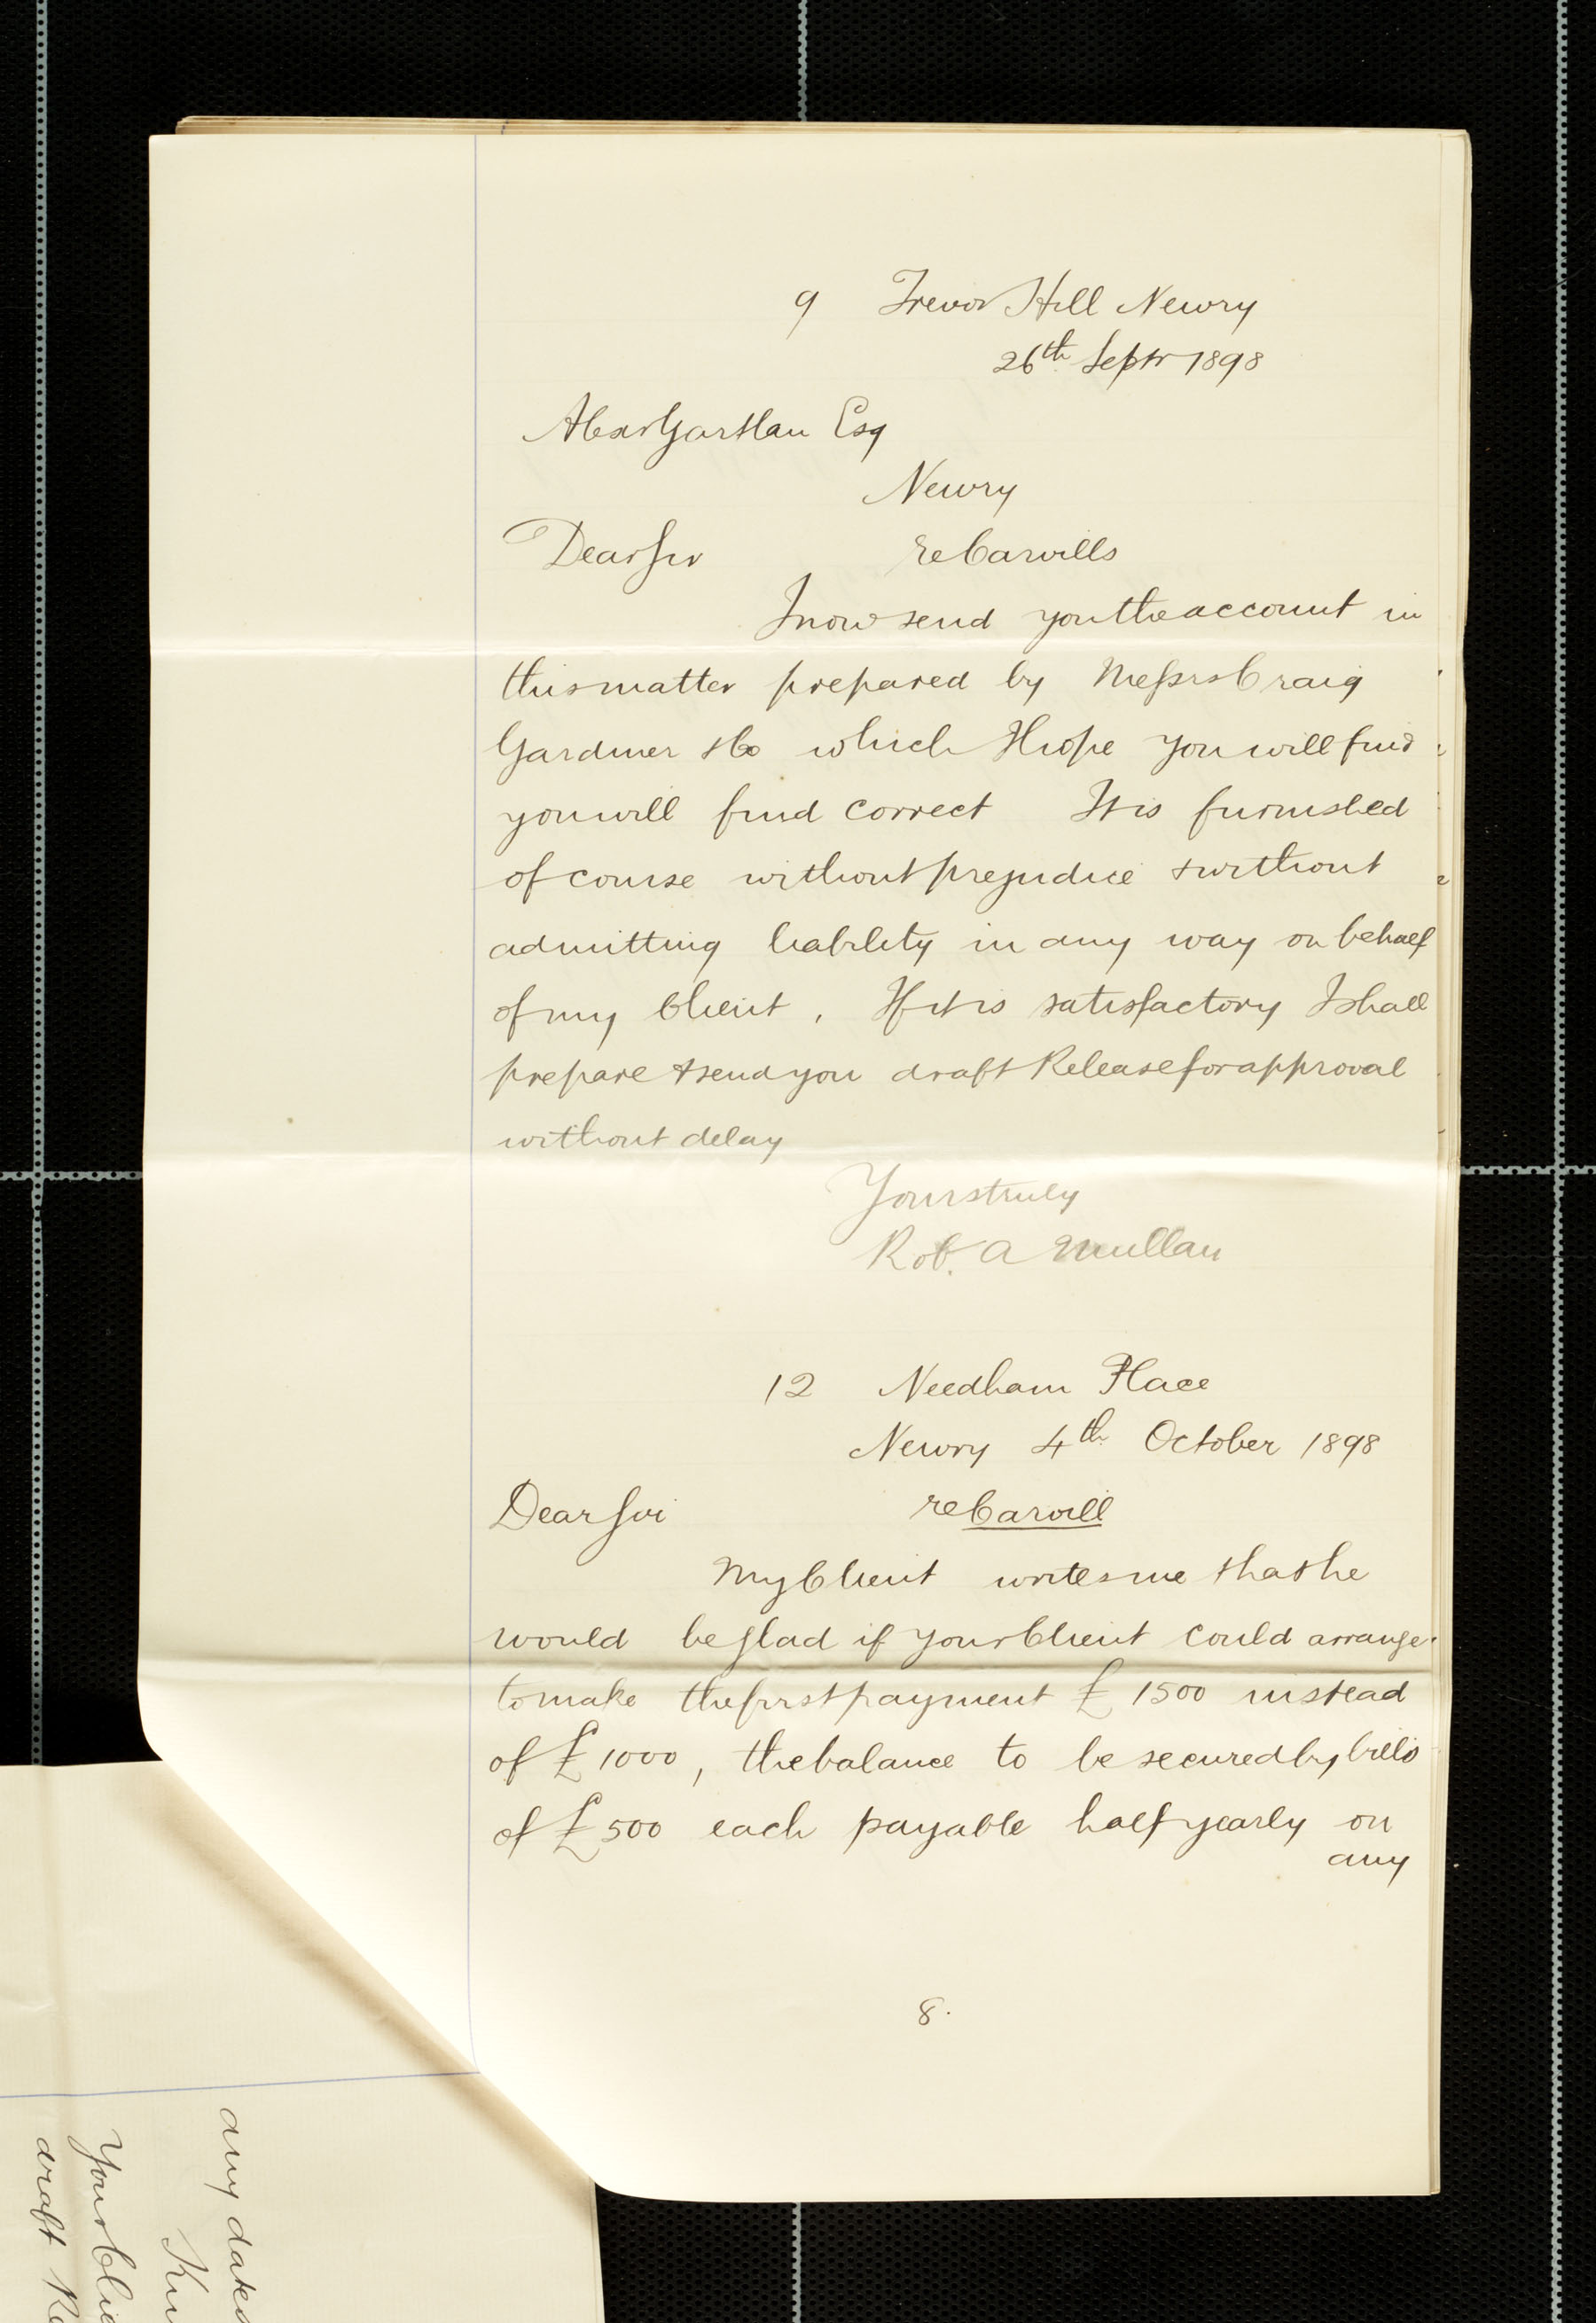 9 Trevor Hill Newry
26th Septr 1898
Alexr Gartlan Esq
Newry
Dear Sir re Carvills
I now send you the account in
this matter prepared by Messrs Craig
Gardner & Co which I hope you will find
you will find correct It is furnished
of course without prejudice & without
admitting liability in any way on behalf
of my Client . If it is satisfactory I shall
prepare & send you draft Release for approval
without delay
Yours truly
Rob. A Mullan
12 Needham Place
Newry 4th October 1898
Dear Sir re Carvill
My Client writes me that he
would be glad if your Client could arrange
to make the first payment £ 1500 instead
of £ 1000, the balance to be secured by bills
of £ 500 each payable half yearly on
any
8.
any dates
Your Clie
draft Re